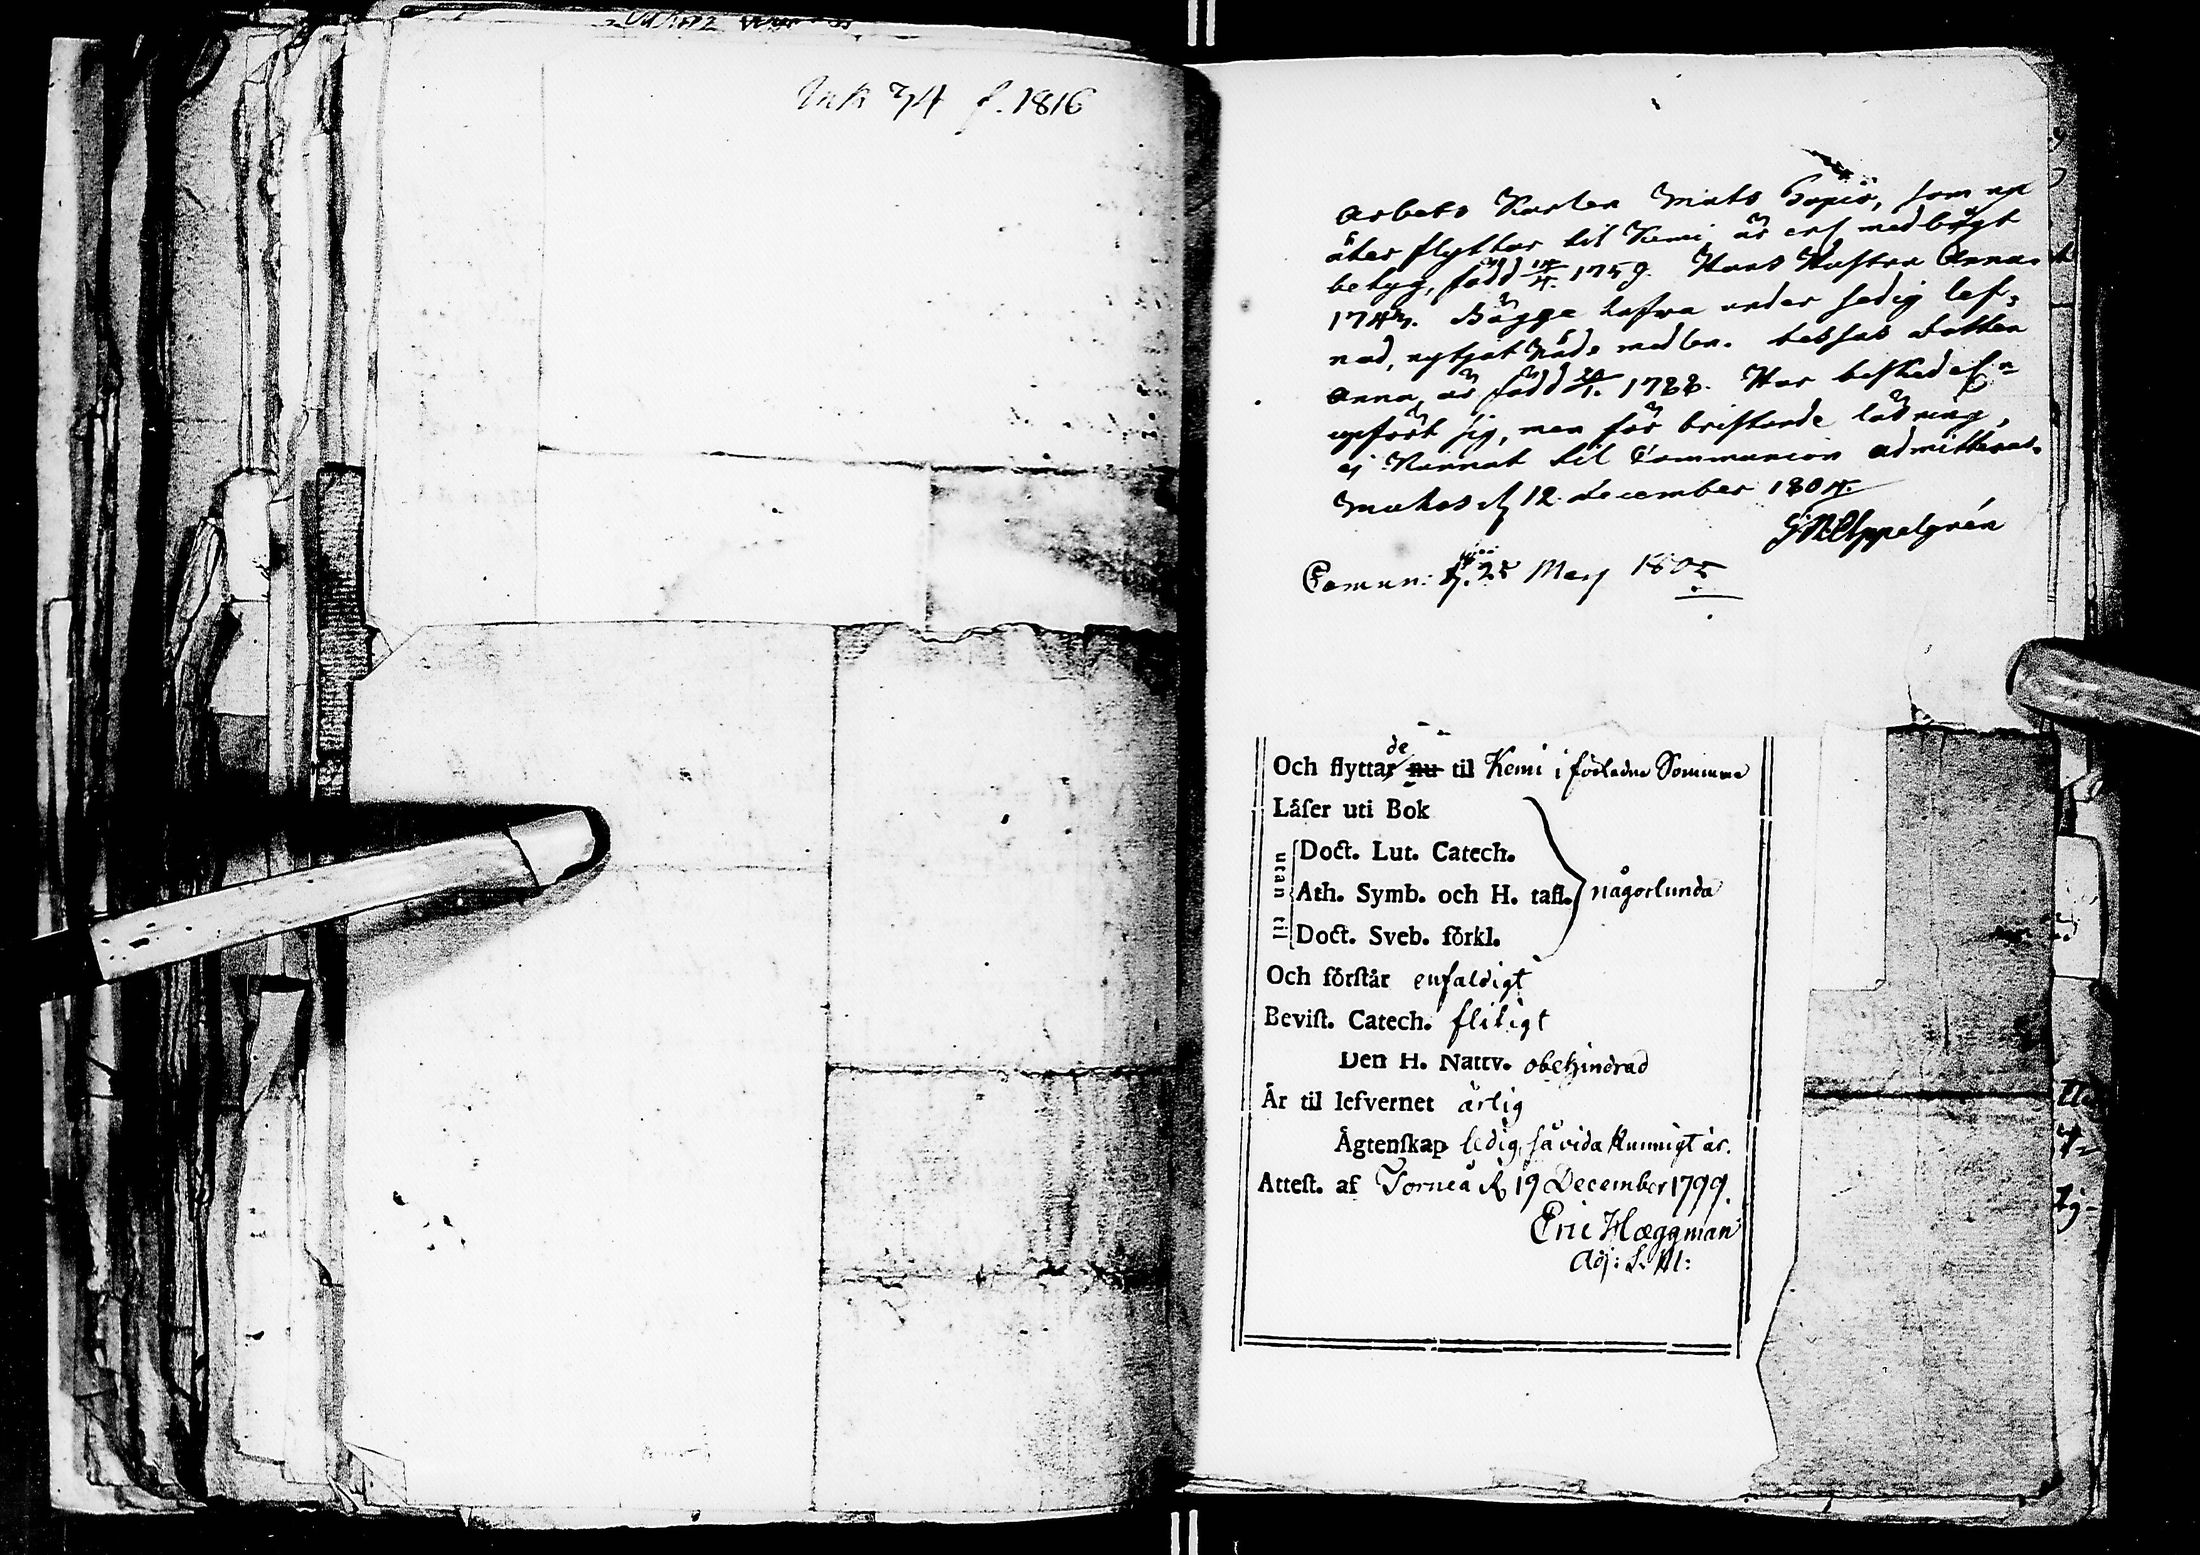 34 f. 1816
Arbets Karlen Mats Hapio, som nu
åter flyttar til Kemi är ert med brägt
betyg, född 14/4. 1759. Hans Hustru Anna.
1743. Bägge hafwa under sedig lef-
nad, nytjat Nåde medlen. dessas dotter
Anna, är född 20/1. 1788. Har beskedel:n
upfört sig, men för bristande läsning,
ej kunnat til Communion admitteras.
Muhos d 12 december 1804.
Appelgrén
Comun: d. 25 Maij 1805
Och flyttar de nu til Kemi i förledne Somma
Låſer uti Bok
utan til
Doct. Lut. Catech.
Ath. Symb. och H. tafl. någorlunda
Doct. Sveb. förkl.
Och förſtår enfaldigt
Beviſt. Catech. flitigt
Den H. Nattv. obehindrad
Är til lefvernet ärlig
Ägtenſkap ledig, så vida kunnigt är.
Atteſt. af Torneå d. 19 December 1799.
Eric Hæggman
Adj: S. M: